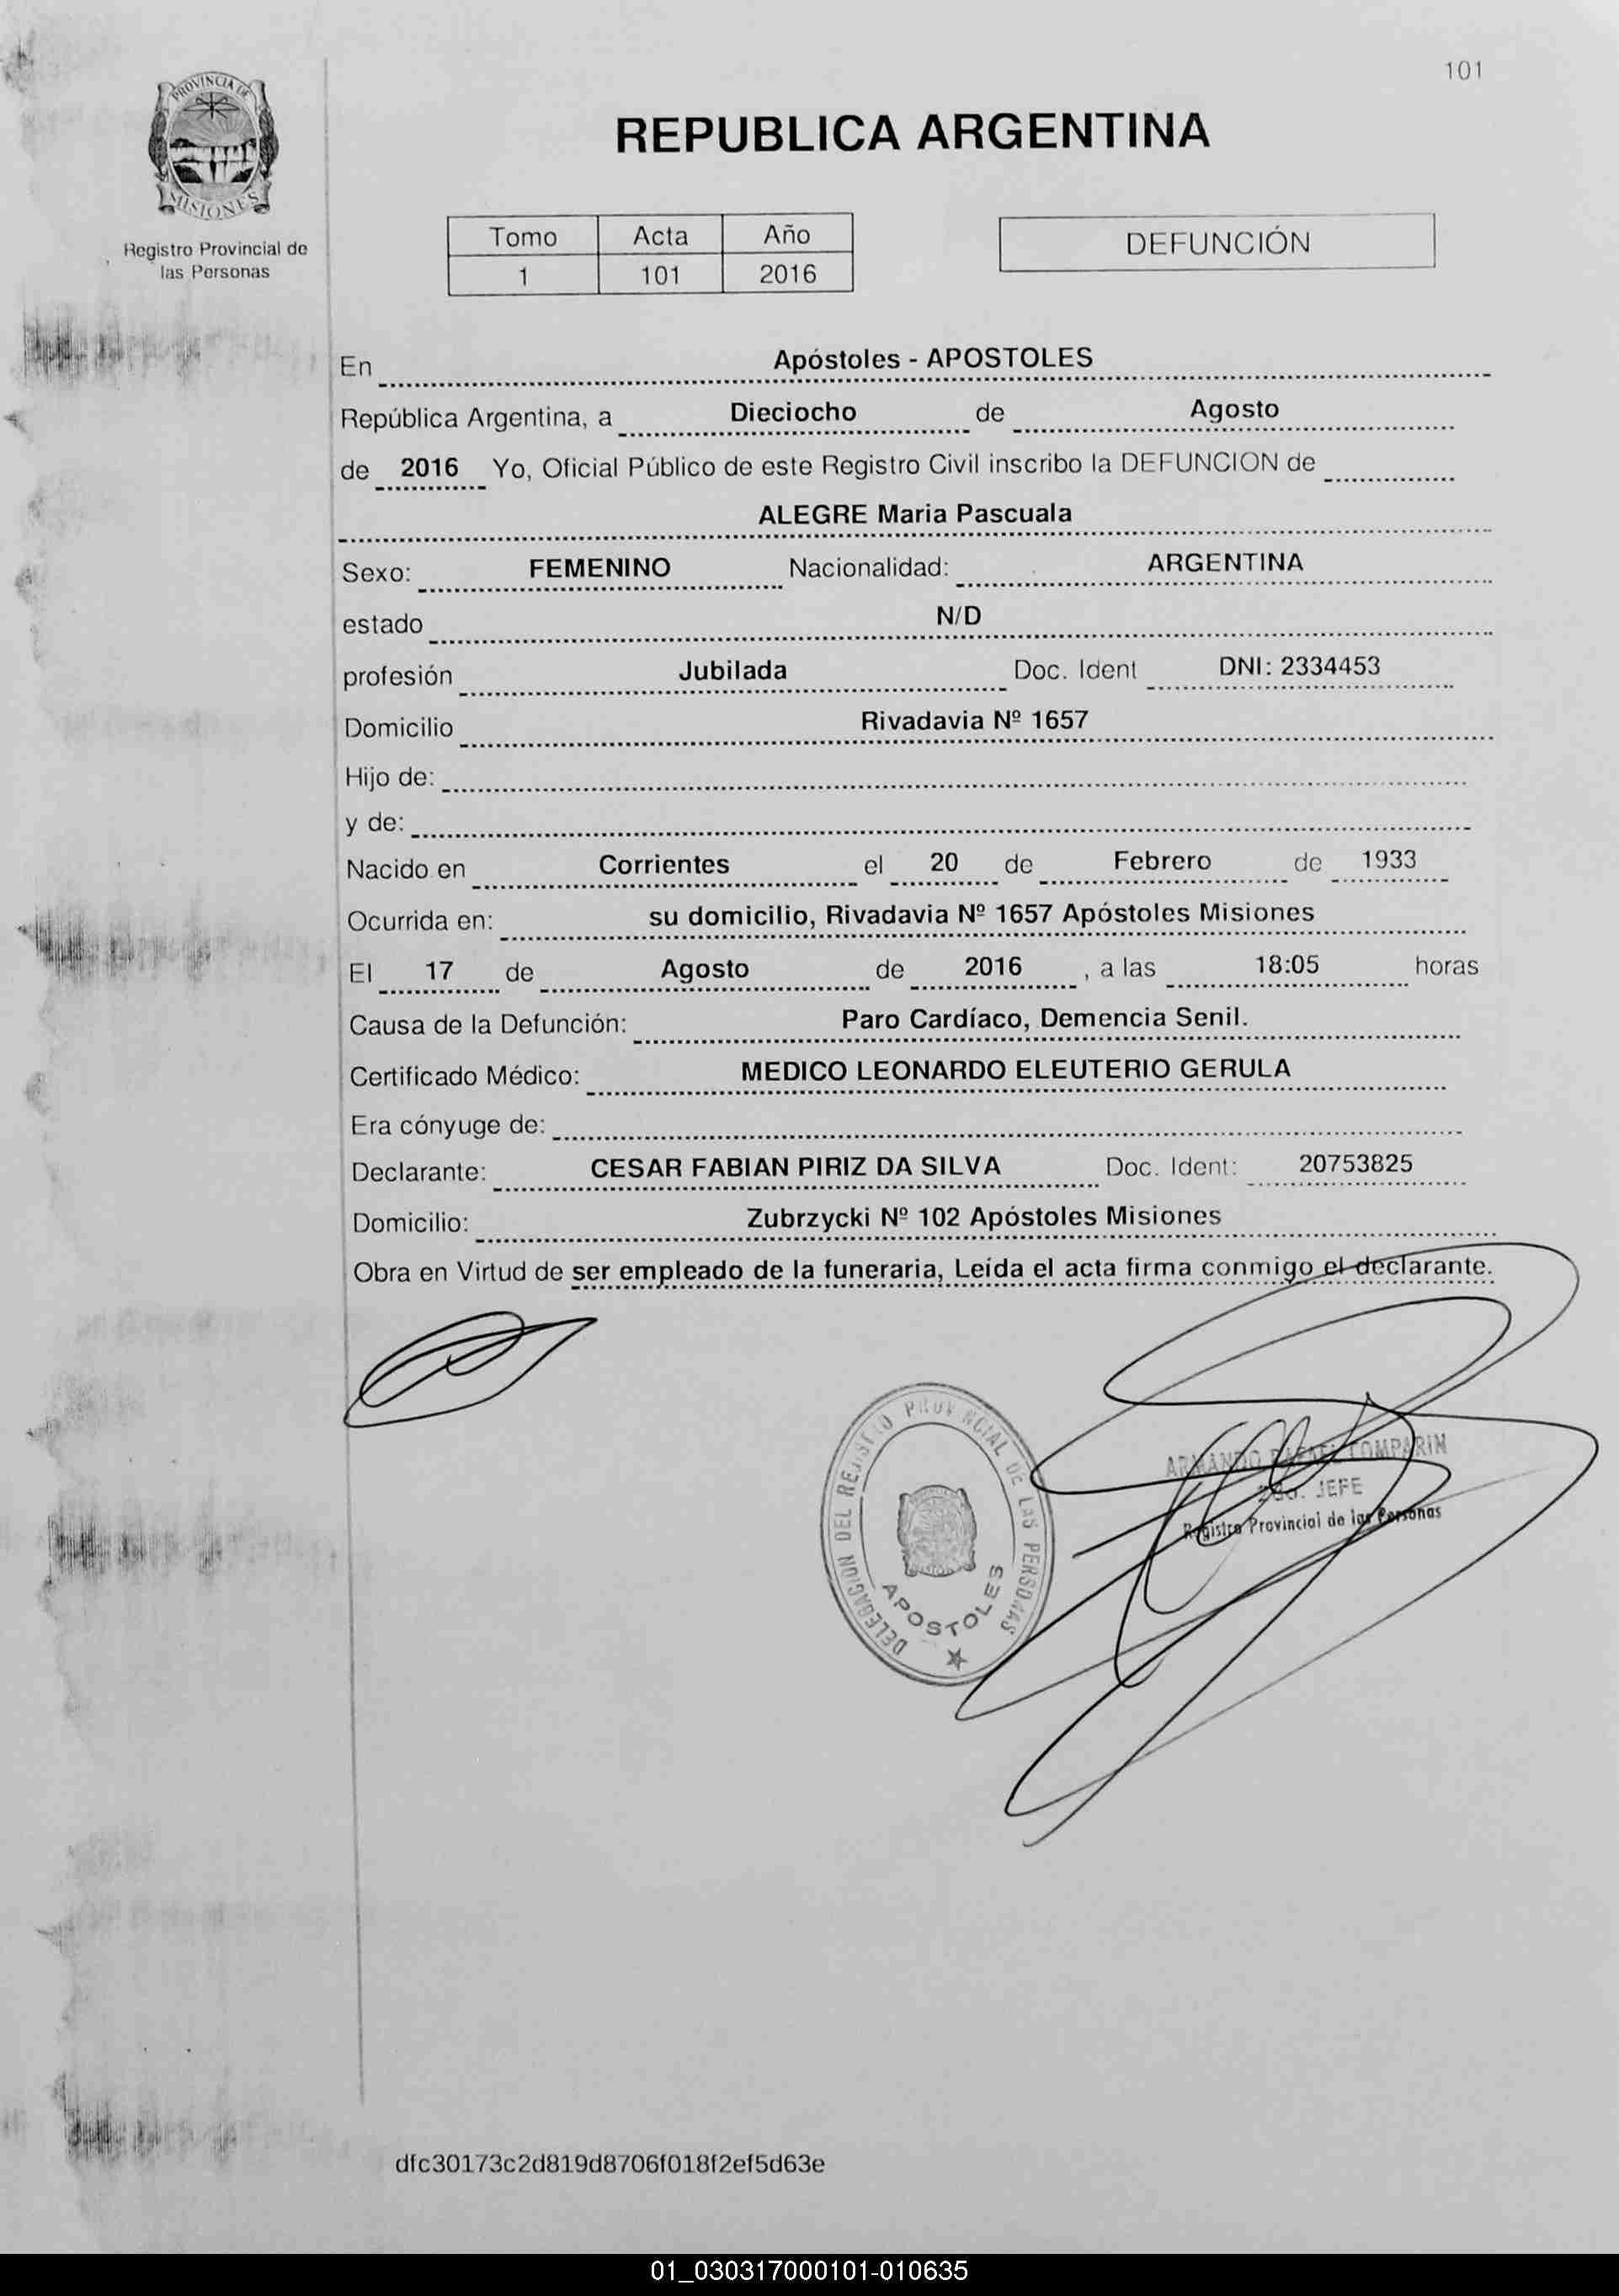 101
PROVINCIA DE
MISIONES
Registro Provincial de
las Personas
REPUBLICA ARGENTINA
Tomo Acta Año
1 101 2016
DEFUNCIÓN
En Apóstoles - APOSTOLES
República Argentina, a Dieciocho de Agosto
de 2016 Yo, Oficial Público de este Registro Civil inscribo la DEFUNCION de
ALEGRE Maria Pascuala
Sexo: FEMENINO Nacionalidad: ARGENTINA
estado N/D
profesión Jubilada Doc. Ident DNI: 2334453
Domicilio Rivadavia Nº 1657
Hijo de:
y de:
Nacido en Corrientes el 20 de Febrero de 1933
Ocurrida en: su domicilio, Rivadavia Nº 1657 Apóstoles Misiones
El 17 de Agosto de 2016 , a las 18:05 horas
Causa de la Defunción: Paro Cardíaco, Demencia Senil.
Certificado Médico: MEDICO LEONARDO ELEUTERIO GERULA
Era cónyuge de:
Declarante: CESAR FABIAN PIRIZ DA SILVA Doc. Ident: 20753825
Domicilio: Zubrzycki Nº 102 Apóstoles Misiones
Obra en Virtud de ser empleado de la funeraria, Leída el acta firma conmigo el declarante.
DELEGACION DEL REGISTRO PROVINCIAL DE LAS PERSONAS
APOSTOLES
ARMANDO RAFAEL COMPARIN
JEFE
Registro Provincial de las Personas
dfc30173c2d819d8706f018f2ef5d63e
01_030317000101-010635